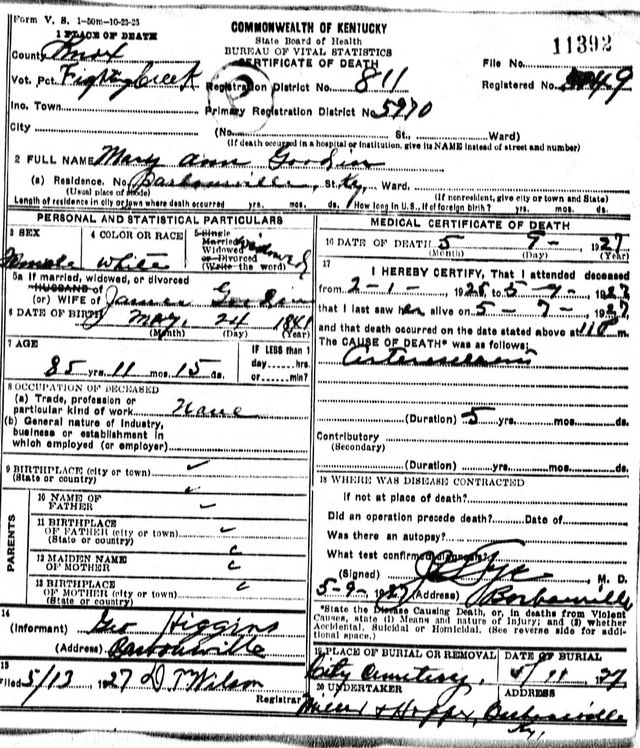 Form V. S. 1-50m-10-23-25
COMMONWEALTH OF KENTUCKY
State Board of Health
BUREAU OF VITAL STATISTICS
CERTIFICATE OF DEATH
11392
File No.
1 PLACE OF DEATH
County Knox
Vot. Pct. Fighting Creek
Registration District No. 811
Registered No. 49
Inc. Town
Primary Registration District No. 5970
City (No. St., Ward)
(If death occurred in a hospital or institution, give its NAME instead of street and number)
2 FULL NAME Mary Ann Goodin
(a) Residence. No. Barbourville, St. Ky, Ward.
(Usual place of abode) (If nonresident, give city or town and State)
Length of residence in city or town where death occurred yrs. mos. ds. How long in U.S., if of foreign birth? yrs. mos. ds.
PERSONAL AND STATISTICAL PARTICULARS
3 SEX 4 COLOR OR RACE 5 Single
Married
Widowed
or Divorced
(Write the word) Widowed
Female White
5a If married, widowed, or divorced
HUSBAND of
(or) WIFE of James Goodin
6 DATE OF BIRTH May, 24 1841
(Month) (Day) (Year)
7 AGE IF LESS than 1
day hrs.
or min?
85 yrs. 11 mos. 15 ds.
8 OCCUPATION OF DECEASED
(a) Trade, profession or
particular kind of work None
(b) General nature of industry,
business or establishment in
which employed (or employer)
9 BIRTHPLACE (city or town)
(State or country)
PARENTS
10 NAME OF
FATHER
11 BIRTHPLACE
OF FATHER (city or town)
(State or country)
12 MAIDEN NAME
OF MOTHER
13 BIRTHPLACE
OF MOTHER (city or town)
(State or country)
14
(Informant) Geo Higgins
(Address) Barbourville
15
Filed 5/13, 1927 D T Wilson
Registrar
MEDICAL CERTIFICATE OF DEATH
16 DATE OF DEATH 5 9- 1927
(Month) (Day) (Year)
17
I HEREBY CERTIFY, That I attended deceased
from 2-1-, 1925 to 5-9-, 1927
that I last saw her alive on 5-7-, 1927
and that death occurred on the date stated above at m.
The CAUSE OF DEATH* was as follows:
Arterosclerosis
(Duration) 5 yrs. mos. ds.
Contributory
(Secondary)
(Duration) yrs. mos. ds.
18 WHERE WAS DISEASE CONTRACTED
If not at place of death?
Did an operation precede death? Date of
Was there an autopsy?
What test confirmed diagnosis?
(Signed) M. D.
5-9-, 1927 (Address) Barbourville
*State the Disease Causing Death, or, in deaths from Violent
Causes, state (1) Means and nature of Injury; and (2) whether
Accidental, Suicidal or Homicidal. (See reverse side for addi-
tional space.)
19 PLACE OF BURIAL OR REMOVAL DATE OF BURIAL
City Cemetery, 5/11 1927
20 UNDERTAKER ADDRESS
Miller & Hopper, Barbourville
Ky.